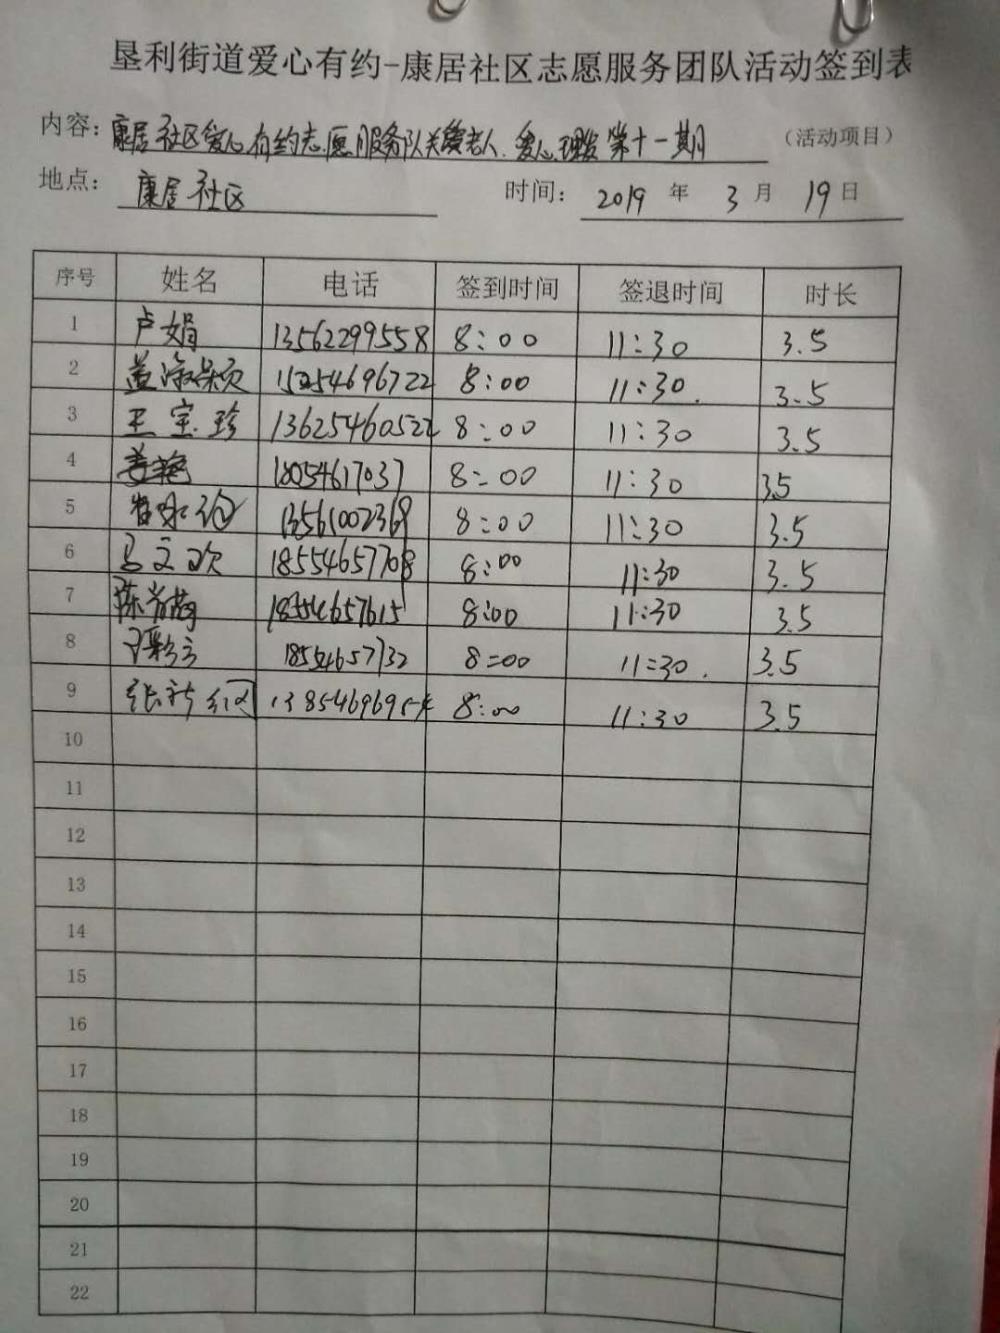 垦利街道爱心有约-康居社区志愿服务团队活动签到表
内容：康居社区爱心有约志愿服务队关爱老人.爱心理发第十一期（活动项目）
地点：康居社区 时间：2019年3月19日
序号 姓名 电话 签到时间 签退时间 时长
1 卢娟 13562299558 8:00 11:30 3.5
2 15254696722 8:00 11:30. 3.5
3 王宝珍 13625460522 8:00 11:30 3.5
4 姜艳 18054617037 8:00 11:30 3.5
5 13561002369 8:00 11:30 3.5
6 18554657708 8:00 11:30 3.5
7 陈 18554657615 8:00 11:30 3.5
8 18554657132 8:00 11:30. 3.5
9 张新 8:00 11:30 3.5
10
11
12
13
14
15
16
17
18
19
20
21
22